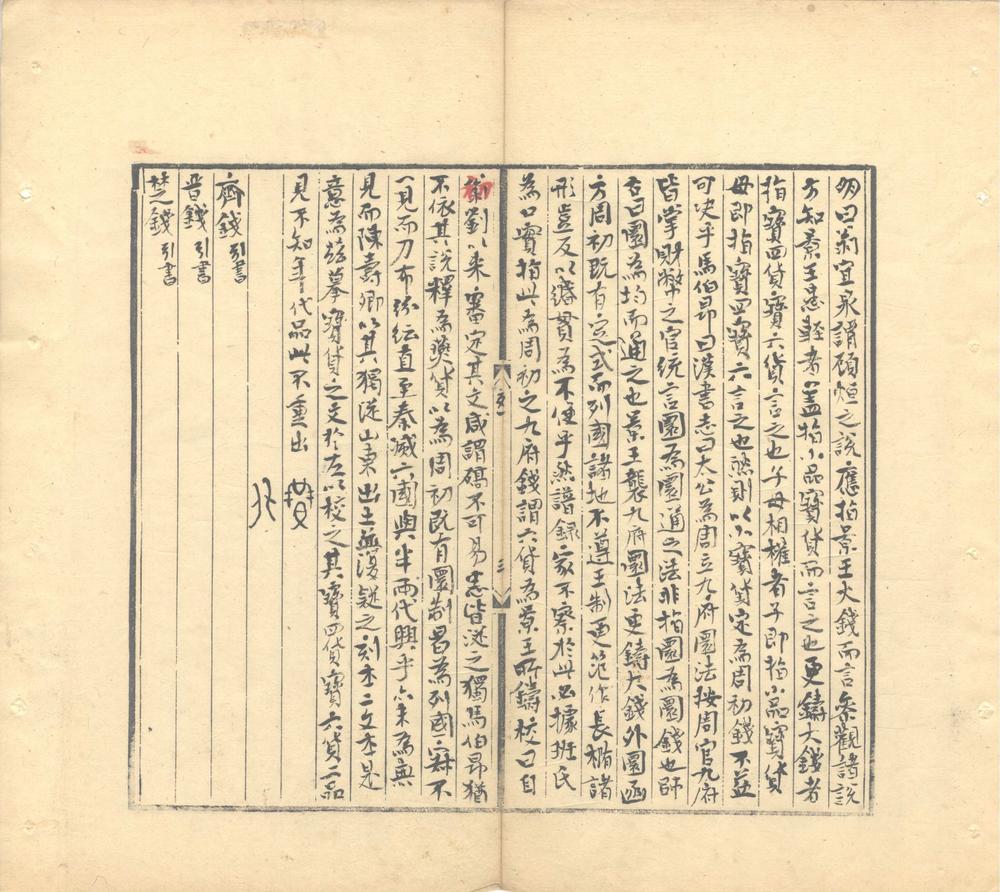 明曰翁宜泉謂顧烜之說應指景王大錢而言參觀諸說
方知景王患輕者蓋指小品寶貨而言之也更鑄大錢者
指寶四貨寶六貨言之也子母相權者子即指小品寶貨
母即指寶四寶六言之也然則以小寶貨定為周初錢不益
可決乎馬伯昂曰漢書志曰太公為周立九府圜法按周官九府
皆掌財幣之官統言圜為圜通之法非指圜為圜錢也師
古曰圜為均而通之也景王襲九府圜法更鑄大錢外圜函
方周初既有定式而列國諸地不遵王制更范作長楕諸
形豈反以繦貫為不便乎然譜錄家不察於此必據班氏
為口實指此為周初之九府錢謂六貨為景王所鑄校曰自
蔡劉以來審定其文咸謂碻不可易志皆遜之獨馬伯昂猶
不依其說釋為燹貨以為周初既有圜制曷為列國寂不
一見而刀布紛紜直至秦滅六國與半兩代興乎亦未為無
見而陳壽卿以其獨從山東出土並漫疑之刻本二文本是
意為茲摹寶貨之文於左以校之其寶四貨寶六貨二品
見不知年代品此不重出
齊錢 引書
晉錢 引書
楚錢 引書
三